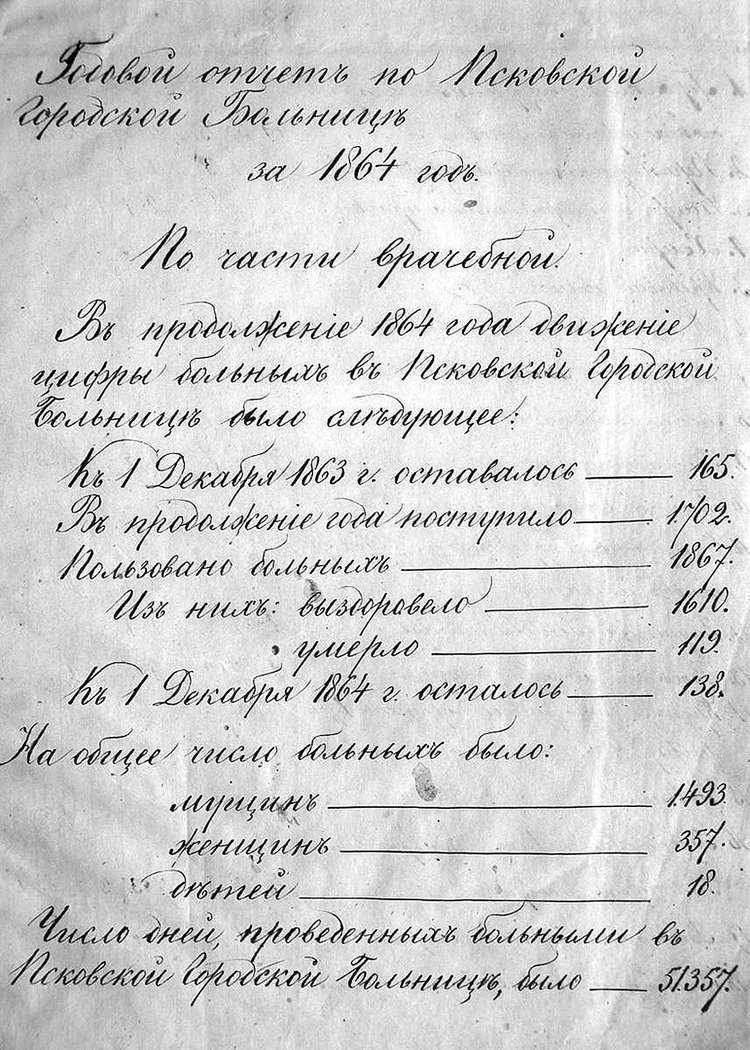 Годовой отчетъ по Псковской
Городской Больницѣ
за 1864 годъ.
По части врачебной.
Въ продолженіе 1864 года движеніе
цифры больныхъ въ Псковской Городской
Больницѣ было слѣдующее:
Къ 1 Декабря 1863 г. оставалось — 165.
Въ продолженіе года поступило — 1.702.
Пользовано больныхъ — 1867.
Изъ нихъ: выздоровело — 1610.
умерло — 119.
Къ 1 Декабря 1864 г. осталось — 138.
На общее число больныхъ было:
мущинъ — 1.493.
женщинъ — 357.
дѣтей — 18.
Число дней, проведенныхъ больными въ
Псковской Городской Больницѣ, было — 51.357.